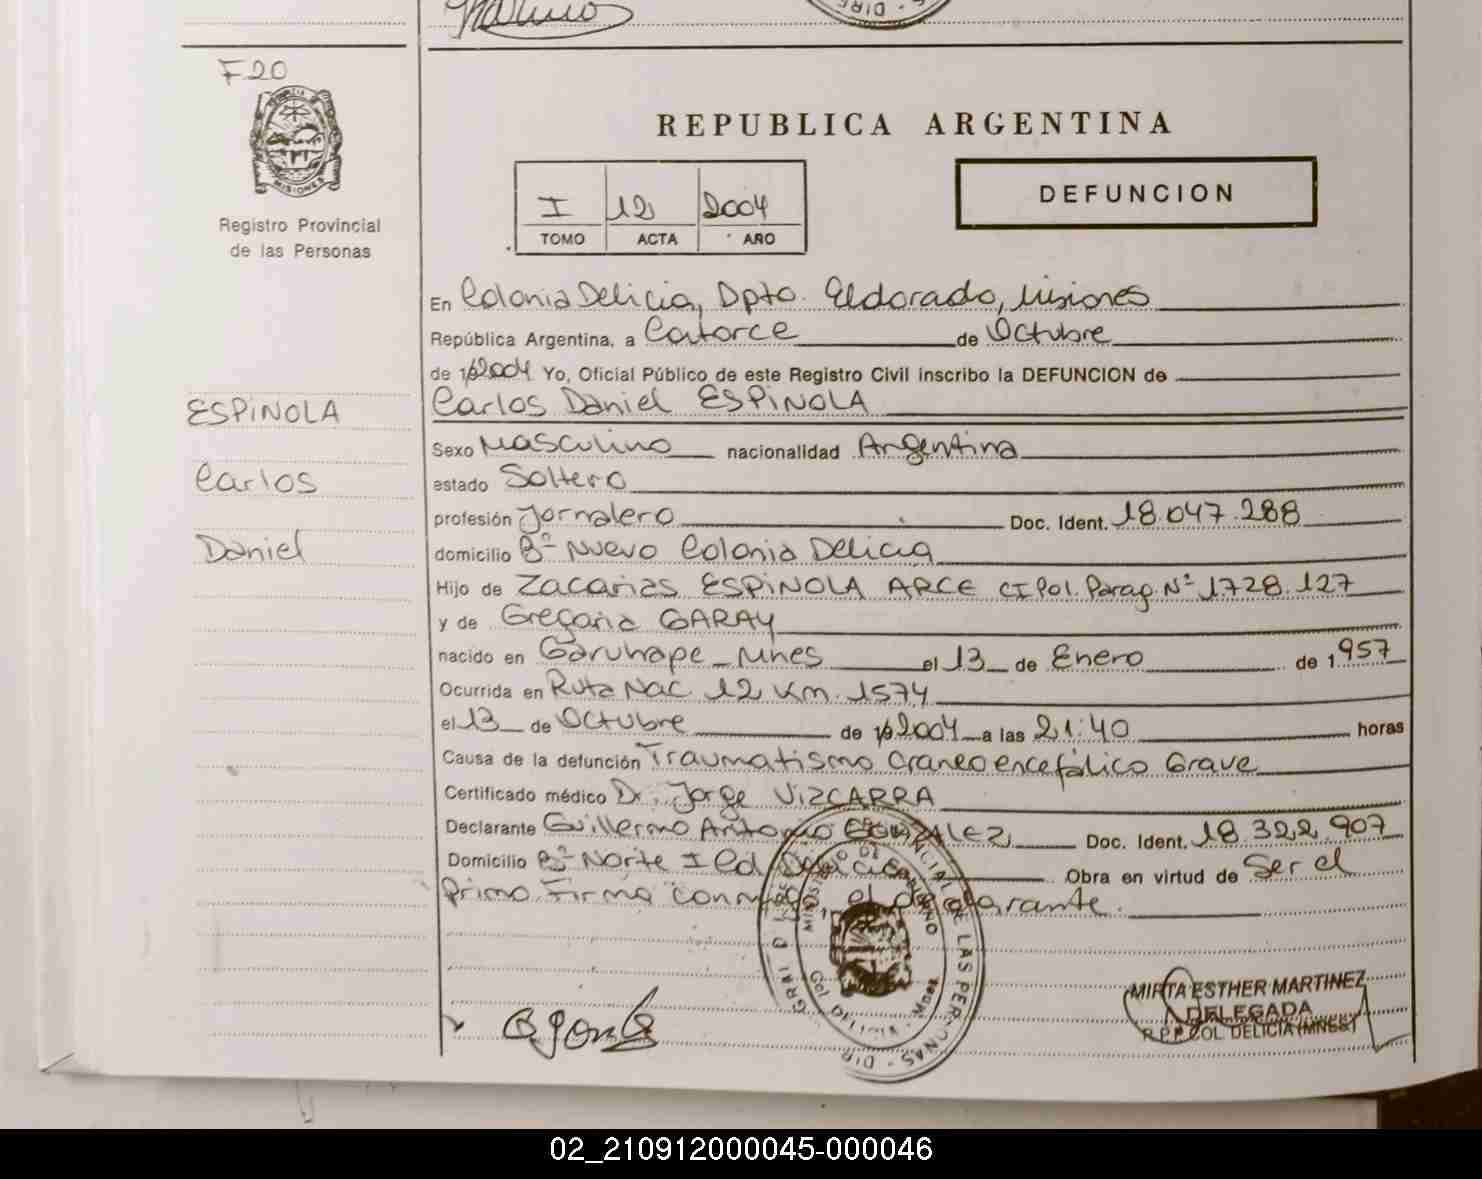 F20
MISIONES
Registro Provincial
de las Personas
REPUBLICA ARGENTINA
I 12 2004
TOMO ACTA AÑO
DEFUNCION
En Colonia Delicia, Dpto. Eldorado, Misiones
República Argentina, a Catorce de Octubre
de 1/2004 Yo, Oficial Público de este Registro Civil inscribo la DEFUNCION de
Carlos Daniel ESPINOLA
ESPINOLA
Carlos
Daniel
Sexo Masculino nacionalidad Argentina
estado Soltero
profesión Jornalero Doc. Ident. 18.047.288
domicilio Bº Nuevo Colonia Delicia
Hijo de Zacarias ESPINOLA ARCE CI Pol. Parag. Nº 1.728.127
y de Gregoria GARAY
nacido en Garuhape - Mnes el 13 de Enero de 1957
Ocurrida en Ruta Nac. 12 Km. 1574
el 13 de Octubre de 2004 a las 21:40 horas
Causa de la defunción Traumatismo craneoencefálico Grave
Certificado médico Dr. Jorge VIZCARRA
Declarante Guillermo Antonio GONZALEZ Doc. Ident. 18.322.907
Domicilio Bº Norte I Col Delicia Obra en virtud de Ser el
Primo Firma conmigo el declarante.
MINISTERIO DE GOBIERNO
Col DELICIA - Mnes
MIRTA ESTHER MARTINEZ
DELEGADA
R.P.P. COL. DELICIA (MNES)
02_210912000045-000046